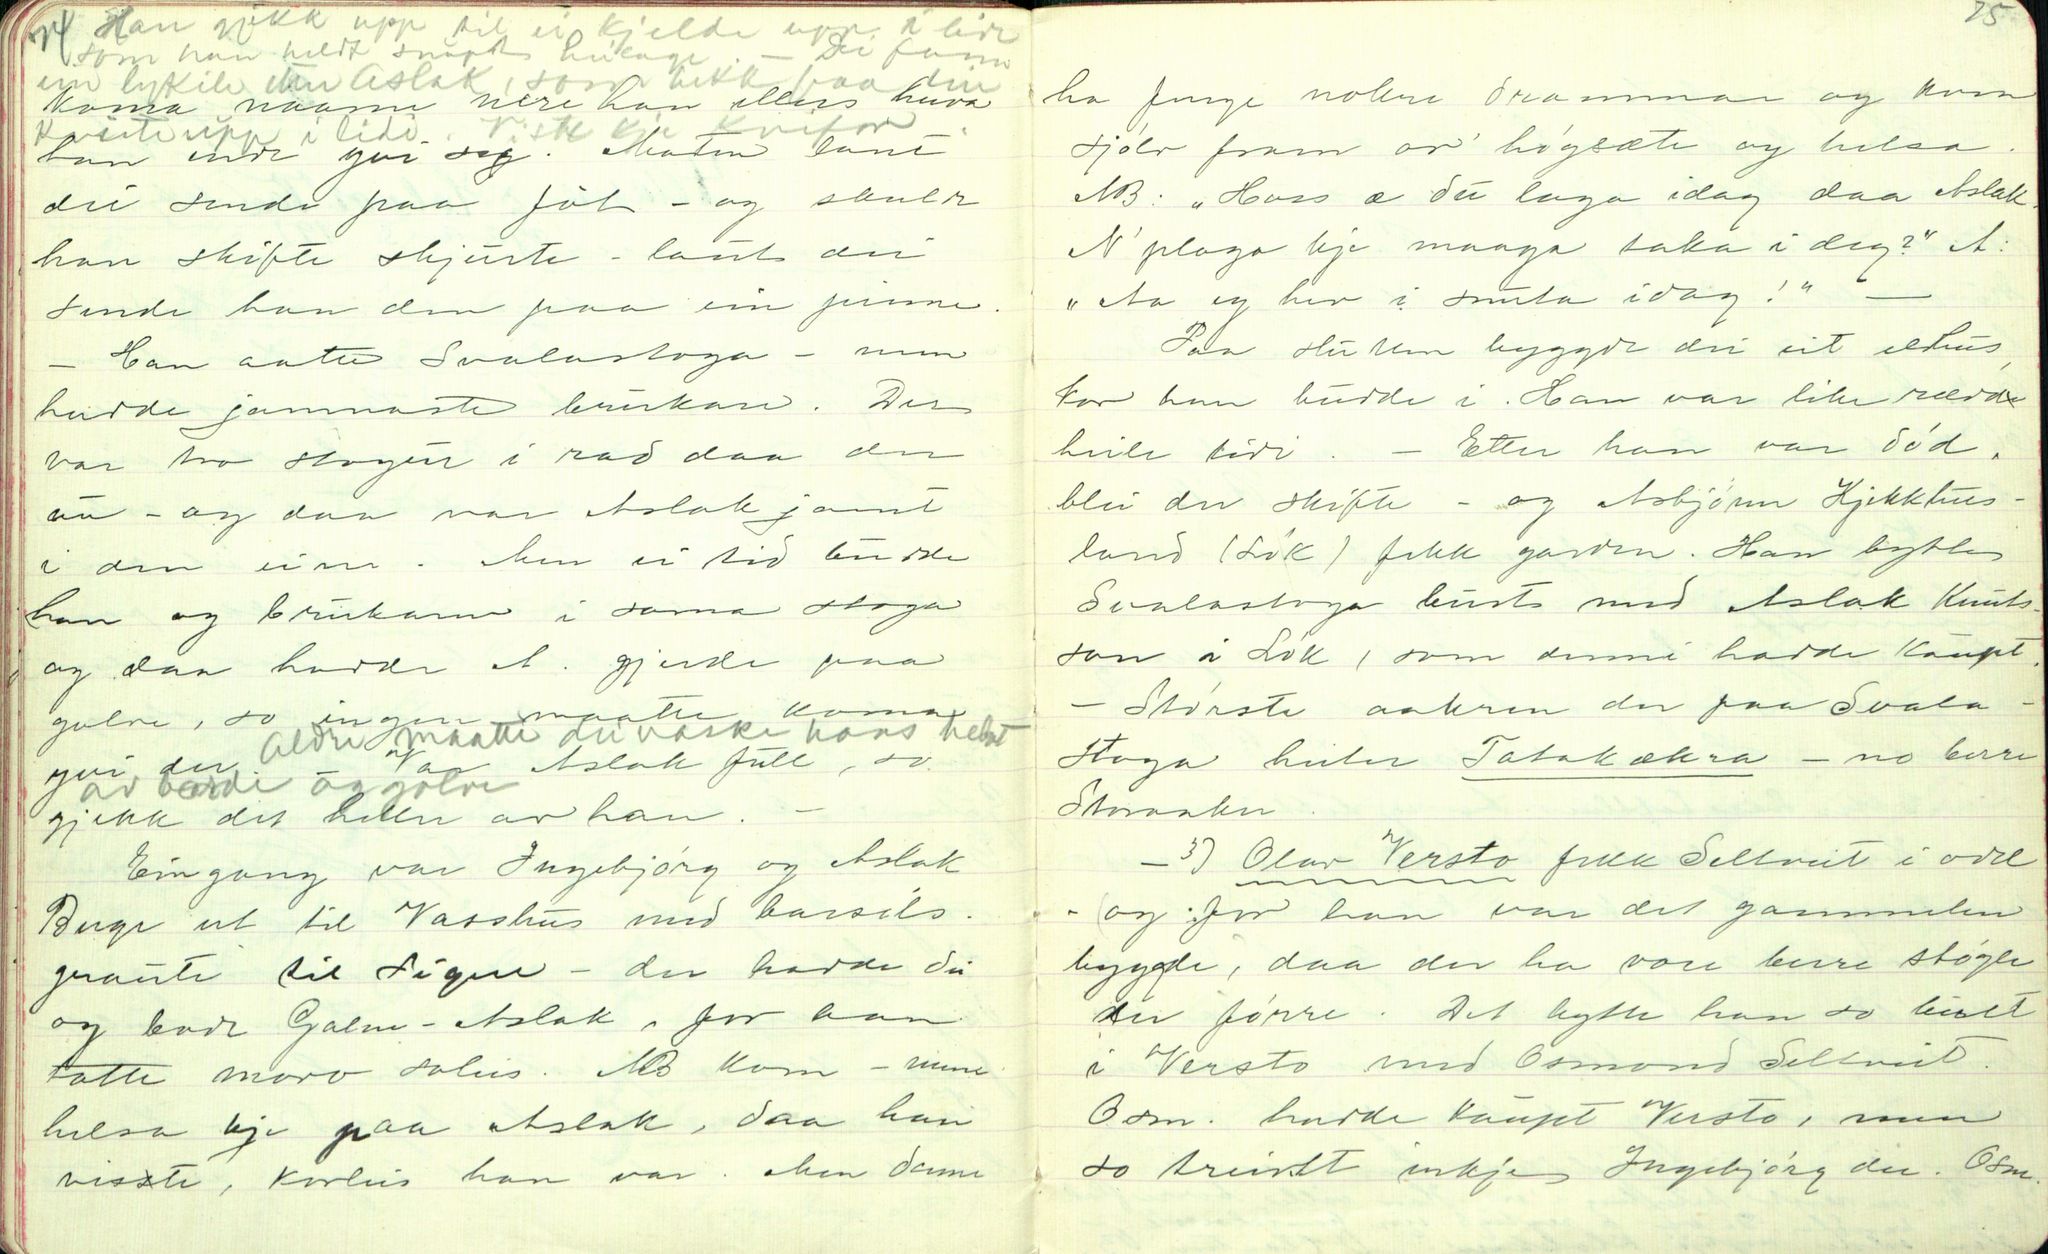 74 Han gjekk upp til ei kjelde upp i lidi
som han heldt
ein lykil etter Aslak, som hekk paa ein
koma naame nere han ellers huva
kviste upp i lidi. Viste kje kvifor.
han inde yvi seg. Maten laut
dei sende paa fjöl - og skulde
han skifte skjurte - laut dei
sende han den paa ein pinne.
- Han aatte Svalastoga - men
hadde jamnaste brukare. Der
var tvo stogur i rad daa der
au - og daa var Aslak jamt
i den eine. Men ei tid budde
han og brukaren i sama stoga
og daa hadde A. gjerde paa
golve, so ingen maatte koma
Aldri maatte dei vaske hans helvt
yvi der. - Var Aslak full, so
av bordi og golve
gjekk det heller av han. -
Ein gong var Ingebjörg og Aslak
Berge ut til Vasshus med barsils-
grauti til Sigrii - der hadde dei
og bode Galne-Aslak, for han
totte moro soleis. AB kom - men
helsa kje paa Aslak, daa han
visste, korleis han var. Men denne
75
ha fenge nokre drammar og kom
sjölv fram or' högsæte og helsa.
AB: "Hoss æ du laga idag daa Aslak.
N' plaga kje maaga taka i deg?" A:
"Aa eg her i snuta idag!" -
Paa slutten byggde dei eit eldhus,
kor han budde i. Han var like rædde
heile tidi. - Etter han var död,
blei der skifte - og Asbjörn Kjekkhus-
land (Lök) fekk garden. Han bytte
Svalastoga burt med Aslak Knuts-
son i Lök, som denni hadde kaupt.
- Störste aakren der paa Svala-
stoga heiter Tatakækra - no berre
Storaaker.
- 3) Olav Versto fekk Seltveit i odel
- (og for han var det gammelen
byggde, daa der ha vore berre stögle
der förre. Det bytte han so burt
i Versto med Osmond Seltveit.
Osm. hadde kaupt Versto, men
so treivst inkje Ingebjörg der. Osm.